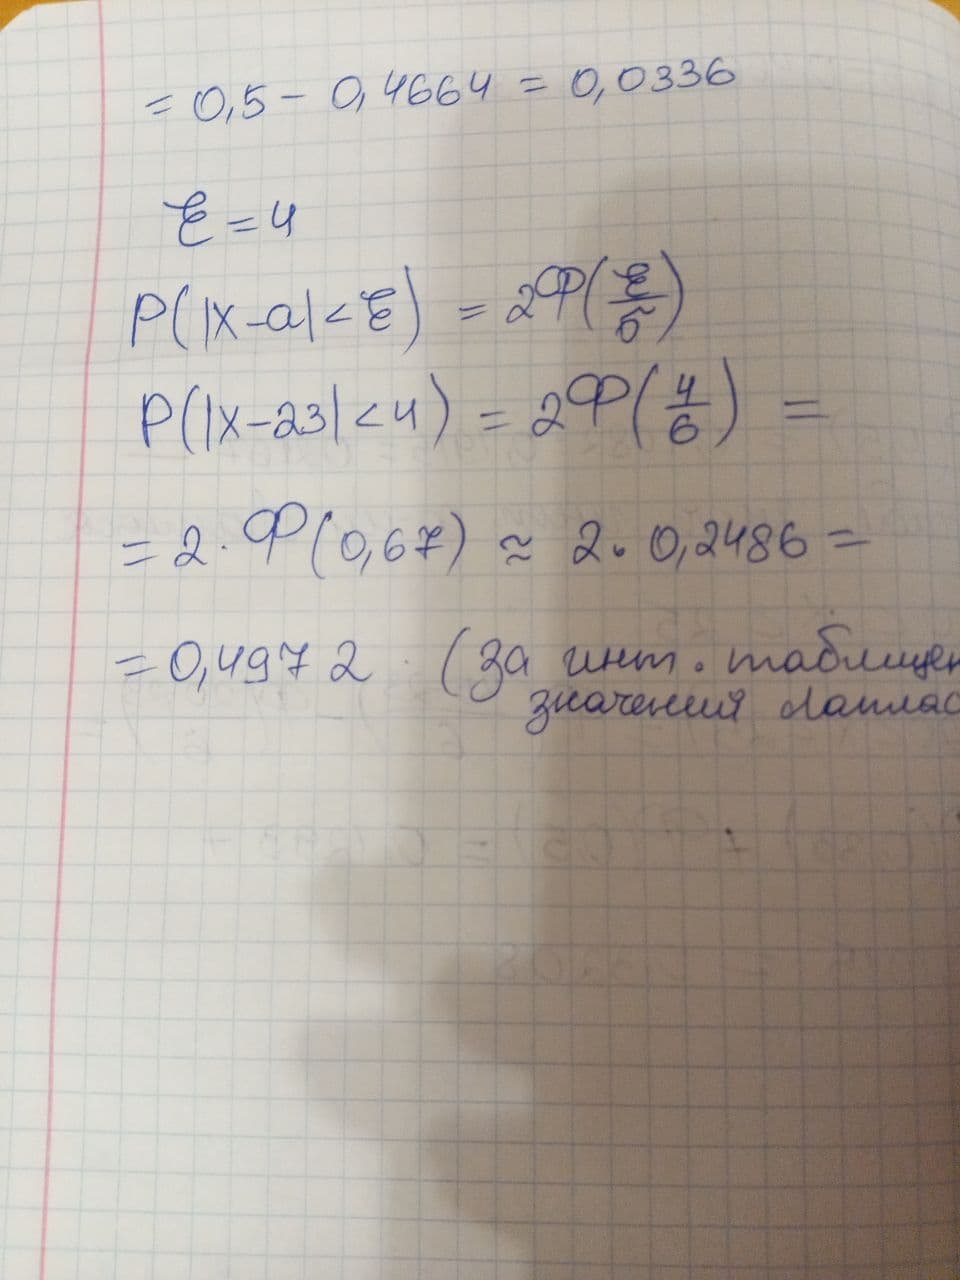 = 0,5 - 0,4664 = 0,0336
ℰ = 4
P(|X-a|<ℰ) = 2Ф(ℰ/σ)
P(|X-23|<4) = 2Ф(4/6) =
= 2·Ф(0,67) ≈ 2·0,2486 =
= 0,4972 (За инт. таблицей
значения Лаплас